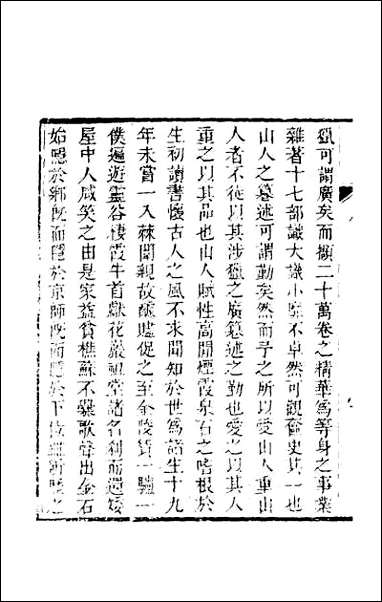 獵可謂廣矣而擷二十萬卷之精華爲等身之事業
雜著十七部識大識小靡不卓然可觀奩史其一也
山人之纂述可謂勤矣然而予之所以愛山人重山
人者不徒以其涉獵之廣纂述之勤也愛之以其人
重之以其品也山人賦性高閒煙霞泉石之嗜根於
生初讀書慢古人之風不求聞知於世爲諸生十九
年未嘗一入棘闈親故醵貲促之至金陵賃一驢一
僕遍遊靈谷棲霞牛首獻花巖祖堂諸名刹而還矮
屋中人咸笑之由是家益貧樵蘇不爨歌聲出金石
始隱於鄉既而隱於京師既而隱於下位無所隱之